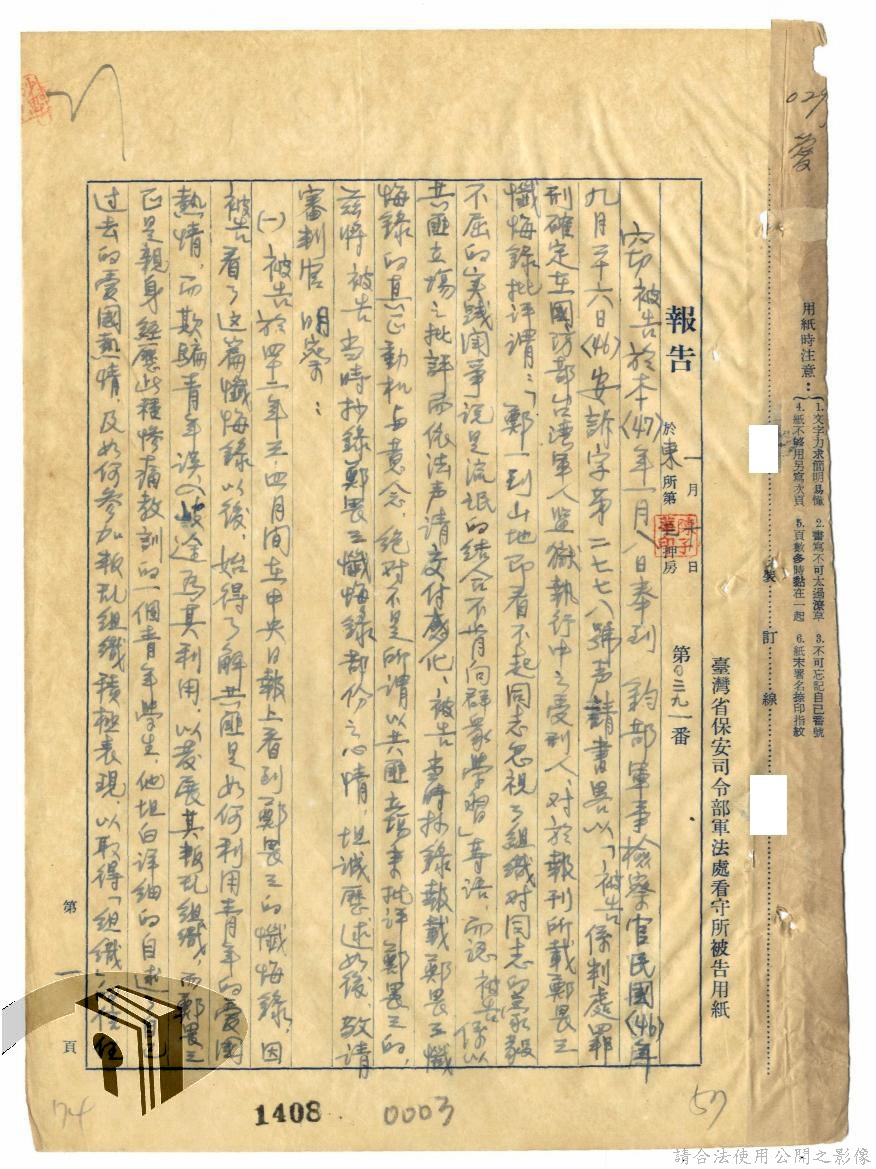 029
用紙時注意：
1.文字力求簡明易懂
2.書寫不可太過潦草
3.不可忘記自己番號
4.紙不够用另寫次頁
5.頁數多時黏在一起
6.紙末署名捺印指紋
裝訂線
臺灣省保安司令部軍法處看守所被告用紙
報告
一月 日
於東所第 押房
第0三九一番
竊被告於本(47)年一月八日奉到 鈞部軍事檢察官民國(46)年
九月廿六日(46)安訴字第二七七八號声請書畧以「被告係判處罪
刑確定在國防部台湾軍人监獄執行中之受刑人、对於報刊所載鄭畏三
懺悔錄批評謂：「鄭一到山地即看不起同志忽視了組織对同志的 毅
不屈的实践鬥爭説是流氓的结合不肯向群衆學習」等語、而認被告係以
共匪立場之批評而依法声请交付感化、被告当時抄錄報載鄭畏三懺
悔錄的真正動机与意念、绝对不是所谓以共匪立場来批評鄭畏三的、
茲將被告当時抄錄鄭畏三懺悔錄部份之心情、坦誠歷述如後、敬请
審判官 明察：
㈠被告於四十二年三、四月间在中央日報上看到鄭畏三的懺悔錄、因
被告看了这篇懺悔錄以後、始得了解共匪是如何利用青年的愛國
熱情、而欺騙青年误入岐途為其利用、以發展其叛乱組織、而鄭畏三
正是親身經歷此種慘痛教訓的一個青年學生、他坦白详细的自述了自己
过去的愛國熱情、及如何參加叛乱組織積極表現、以取得「組織
第一頁
74
1408
0003
57
請合法使用公開之影像